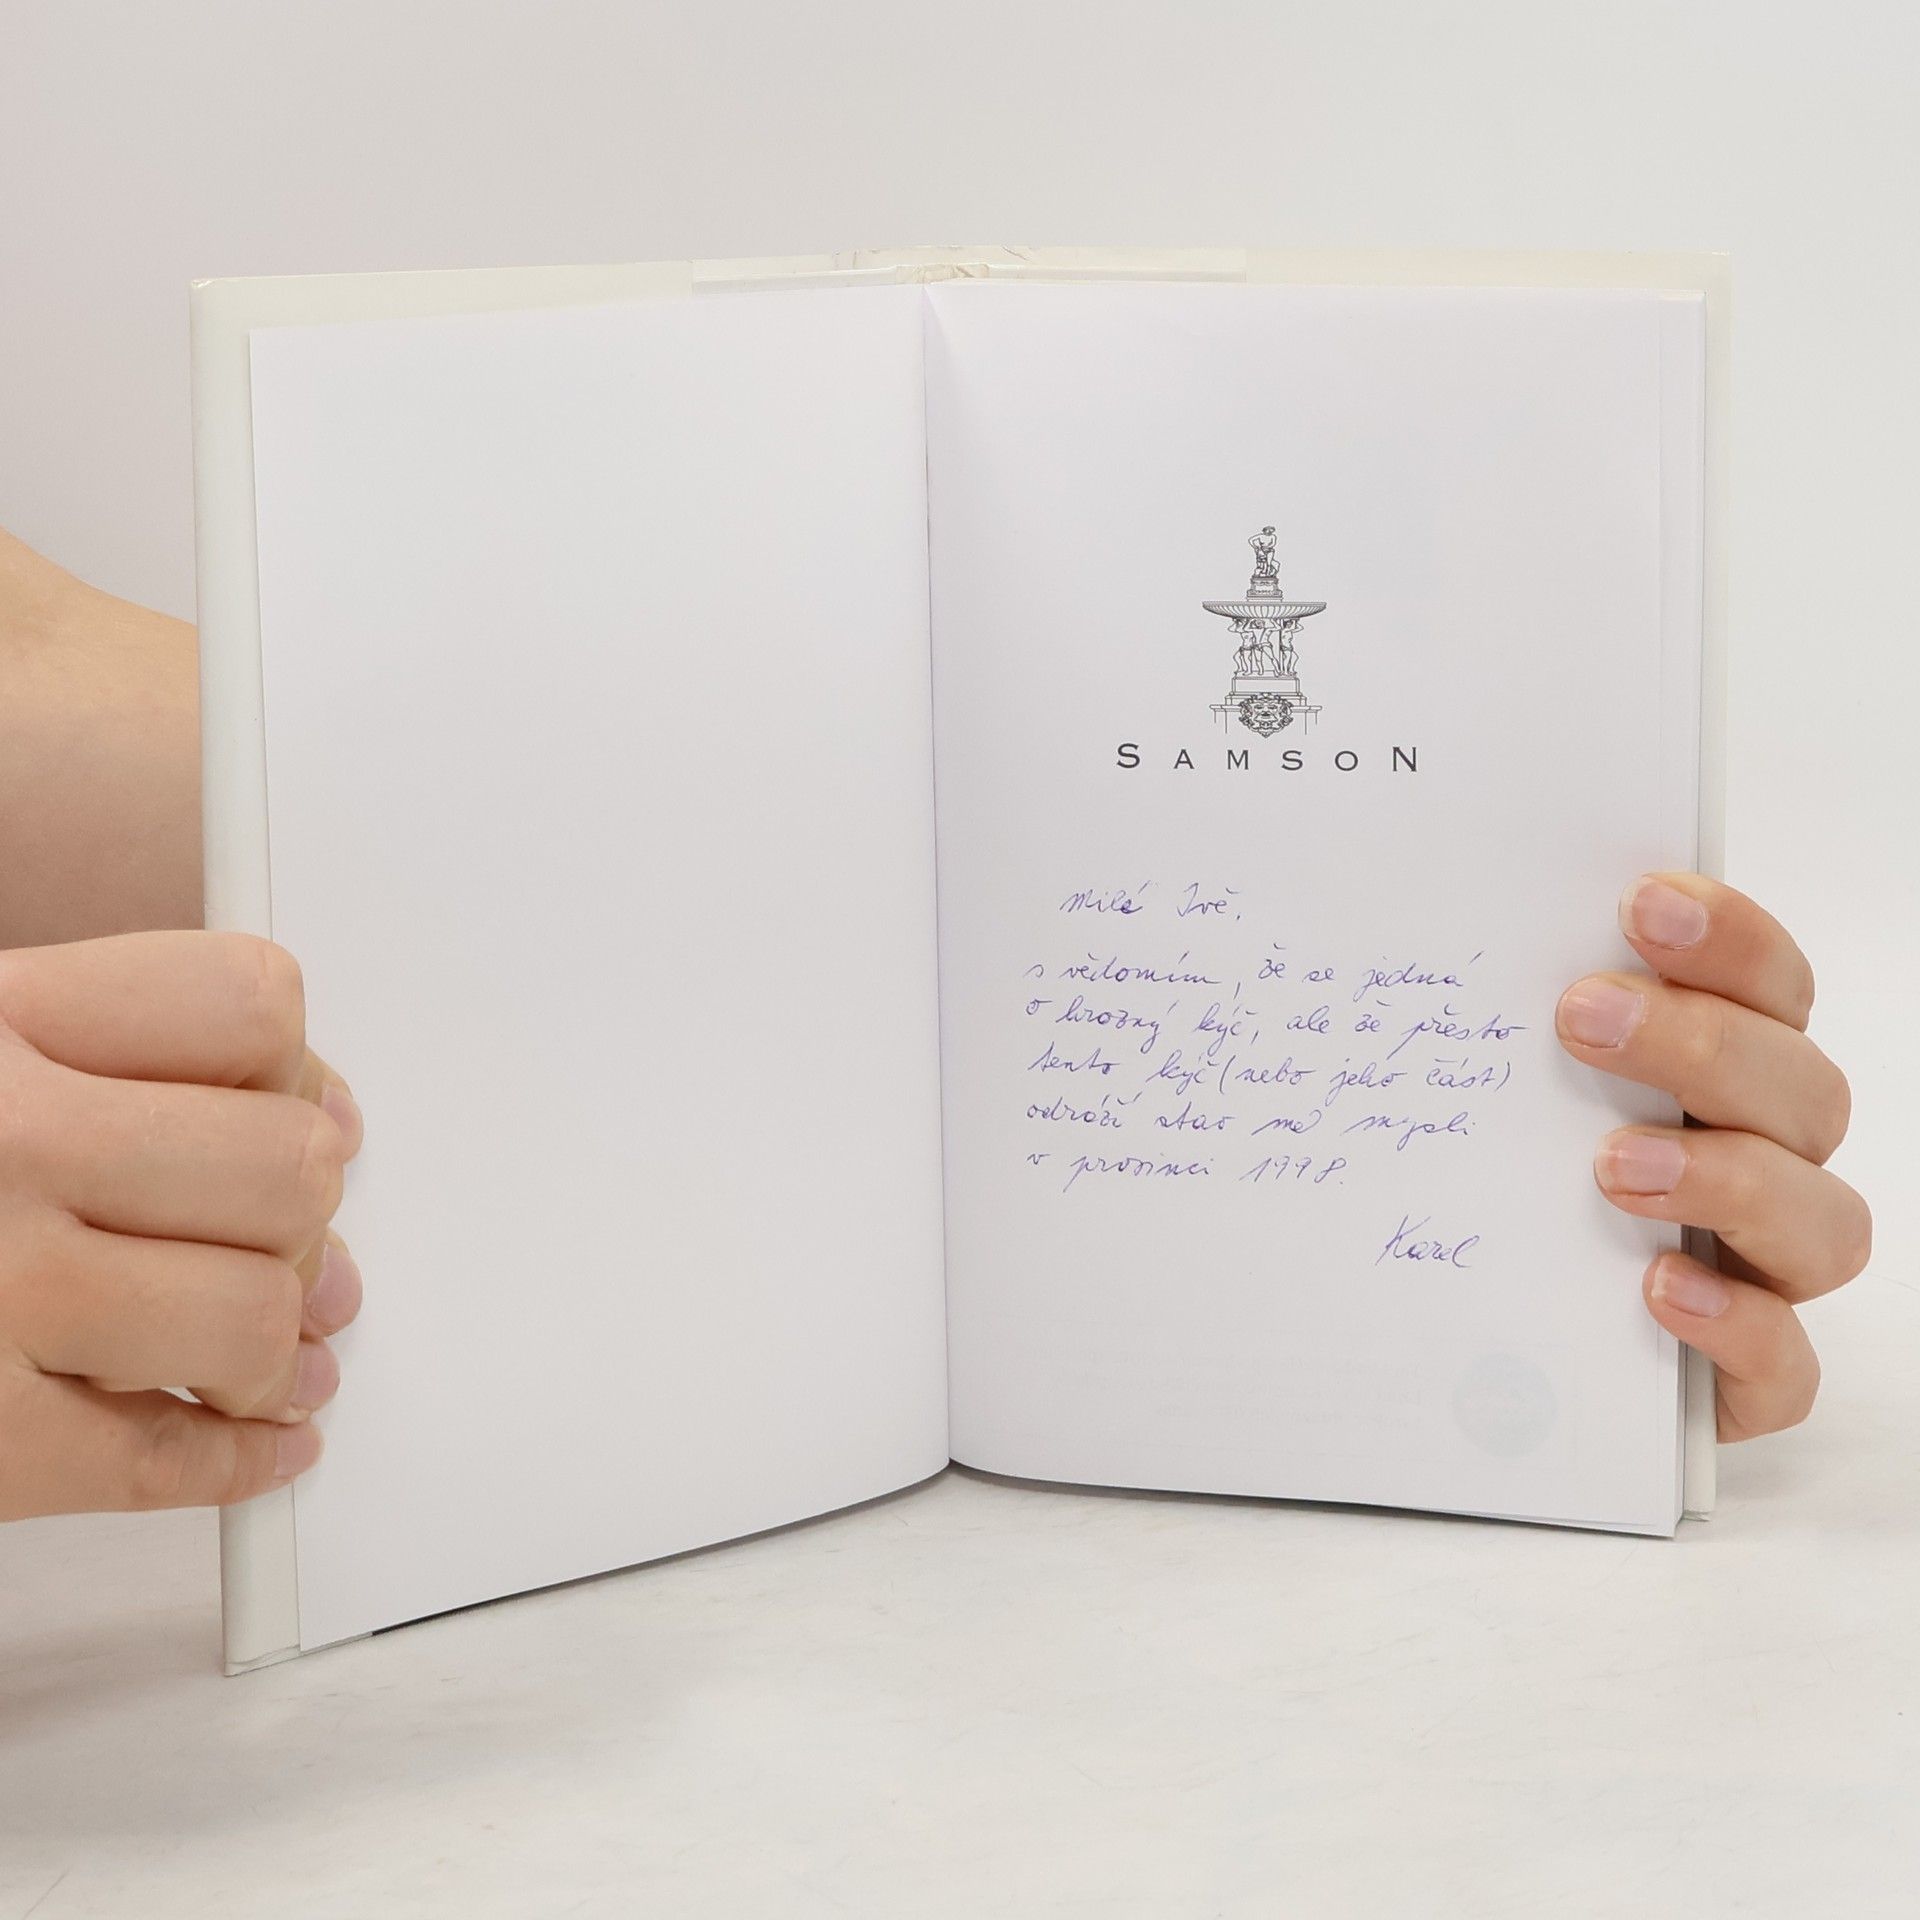 SAMSON
Milé Ivě,
s vědomím, že se jedná
o hrozný kýč, ale že přesto
tento kýč (nebo jeho část)
odráží stav mé mysli
v prosinci 1998.
Karel